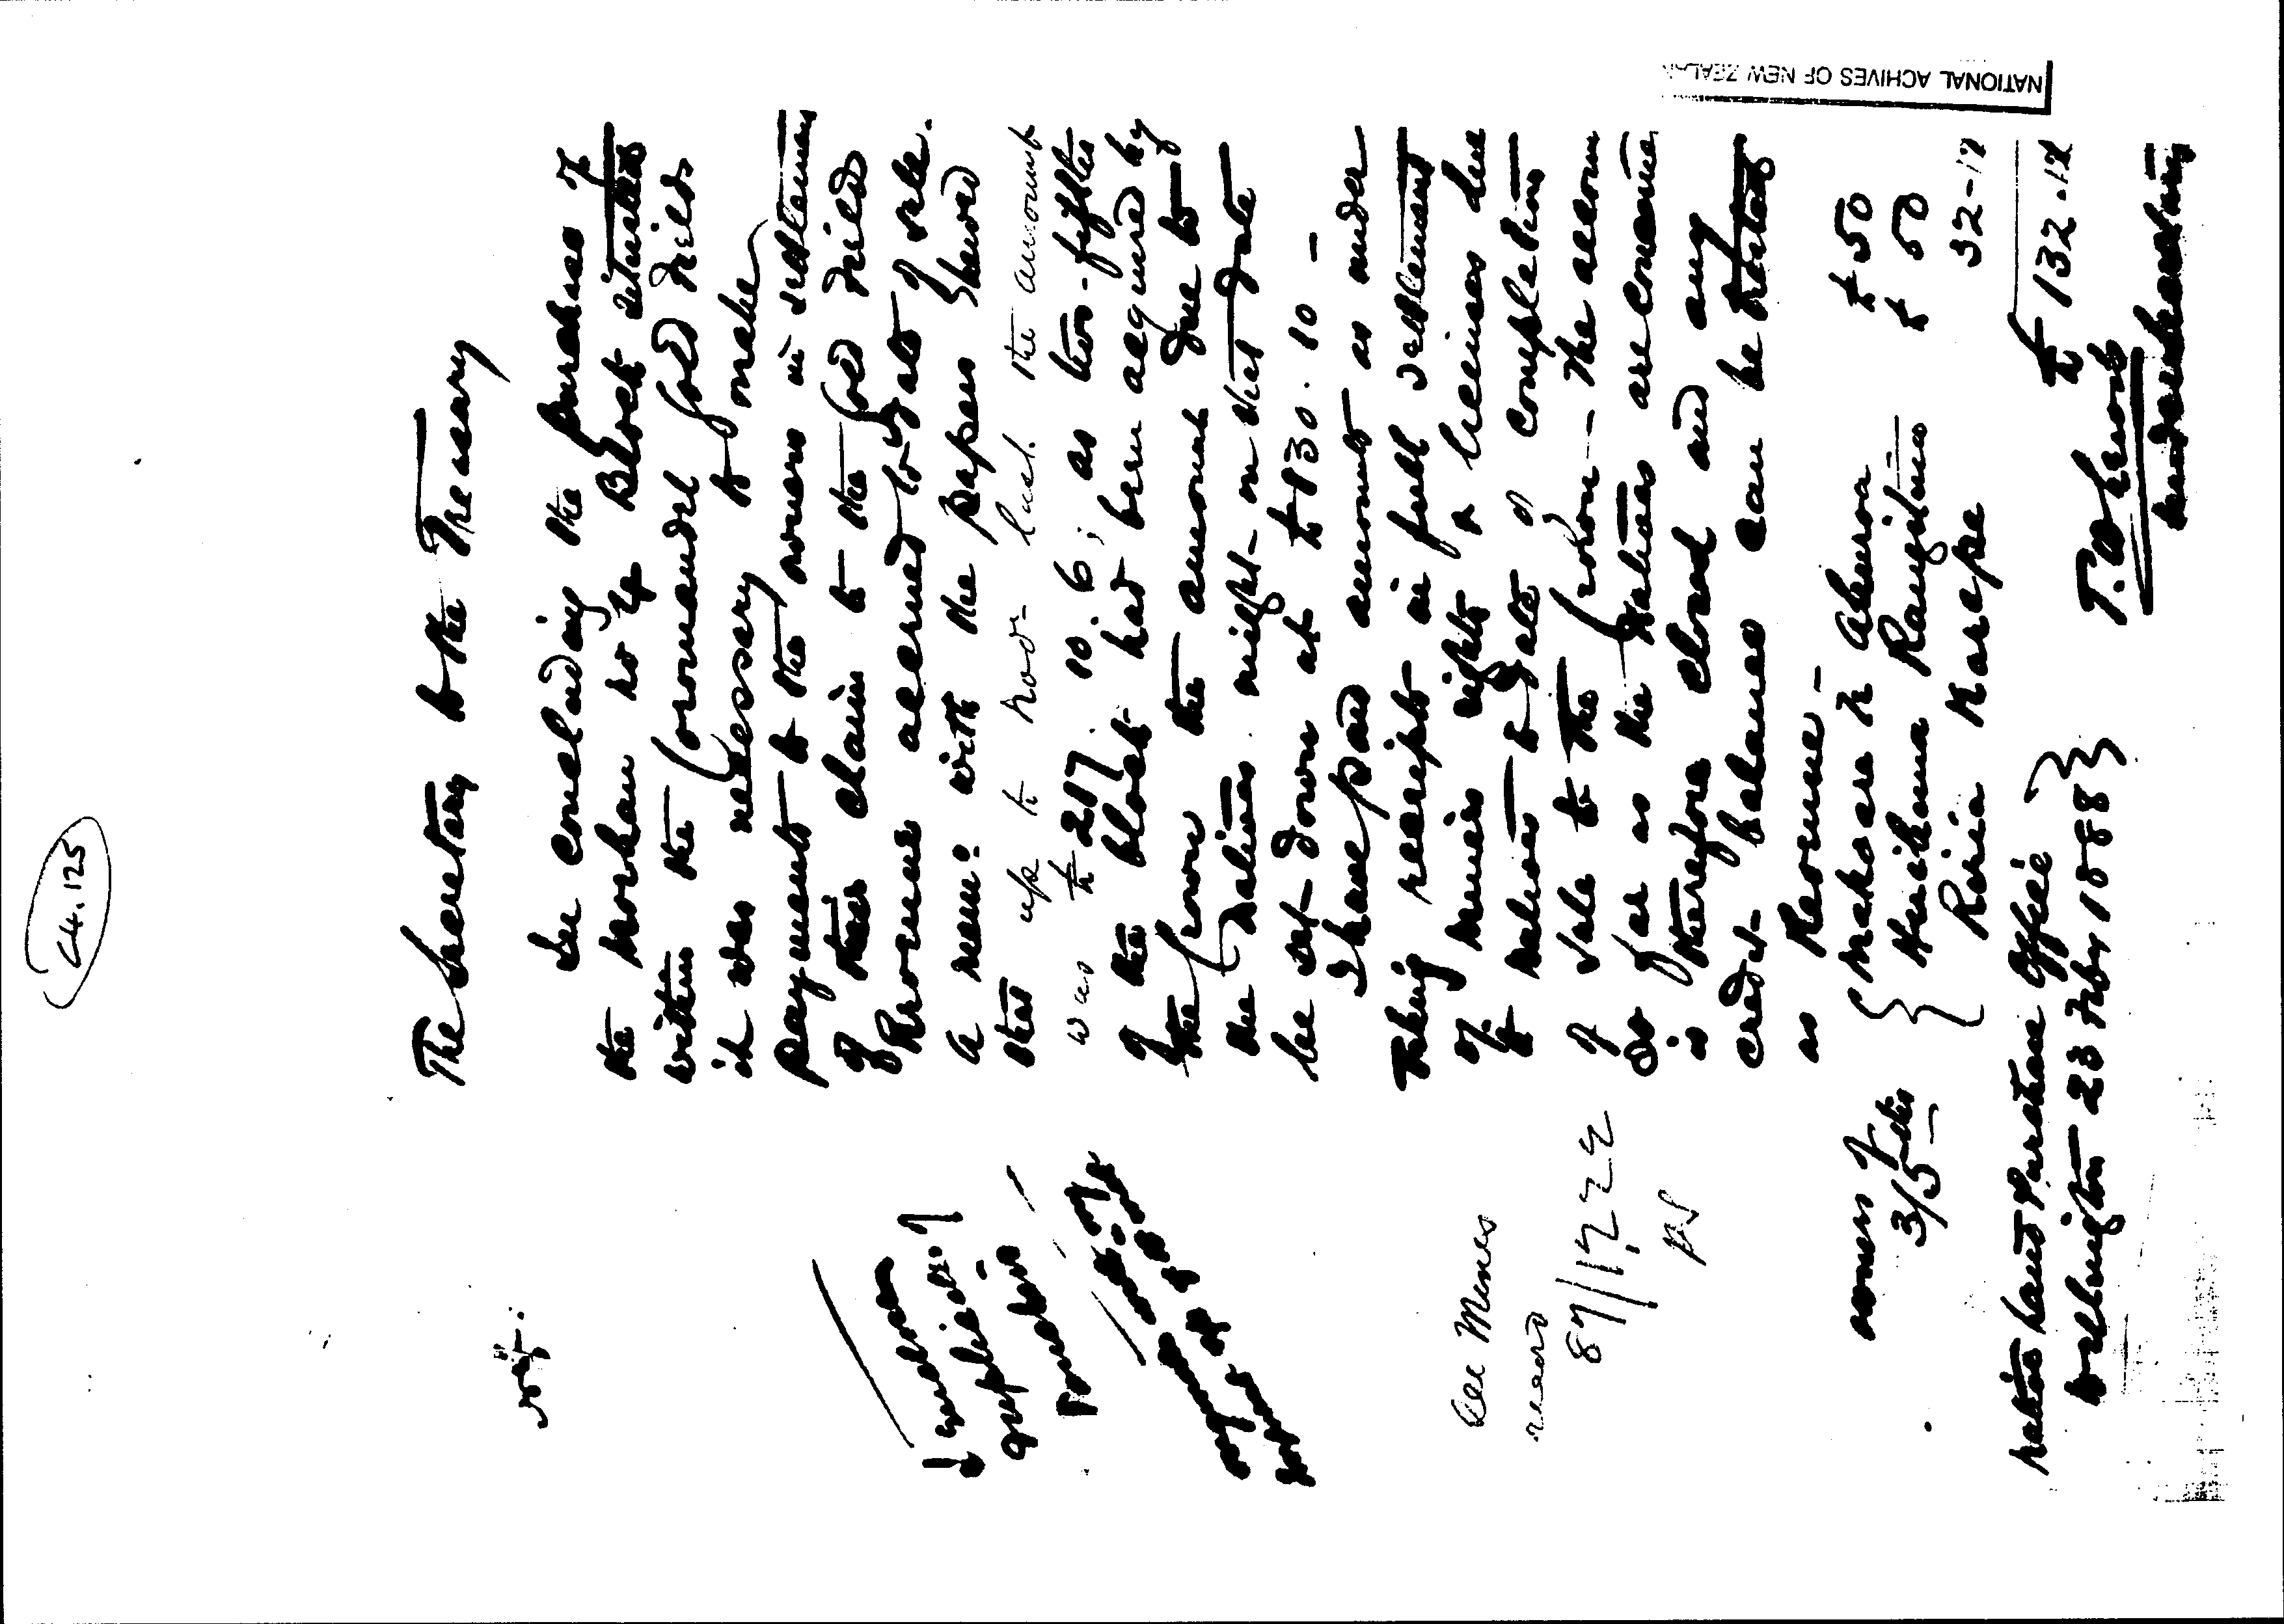 C4.125
The Secretary to the Treasury
In concluding the purchase of
the Moehau No 4 Block situated
within the Coromandel Gold Fields
it was necessary to make
payments to the owners in settlement
of their claim to the Gold Fields
Revenue accrued to date of sale.
A memo: with the papers showed
that up to Novr last the amount
was £217. 10. 6; as two-fifths
of the block had been acquired by
the Crown the amount due to
the Natives might on that date
be set down at £130. 10 -
I have paid amounts as under
Taking receipts in full settlement
of Miners rights & licenses due
to natives to date of completion
of sale to the Crown - The account
so far as the Natives are concerned
is therefore closed and any
credit balance can be treated
as Revenue -
owners of
3/5ths
Makoare Te Ahuroa £50
Herihana Rangitina £50
Riria Karepe 32-12
£132.12
Native Land Purchase Office
Wellington 23 Feby 1888
T.W. Lewis
Undersecretary
See Mines
record
87/1722
NATIONAL ACHIVES OF NEW ZEALAN